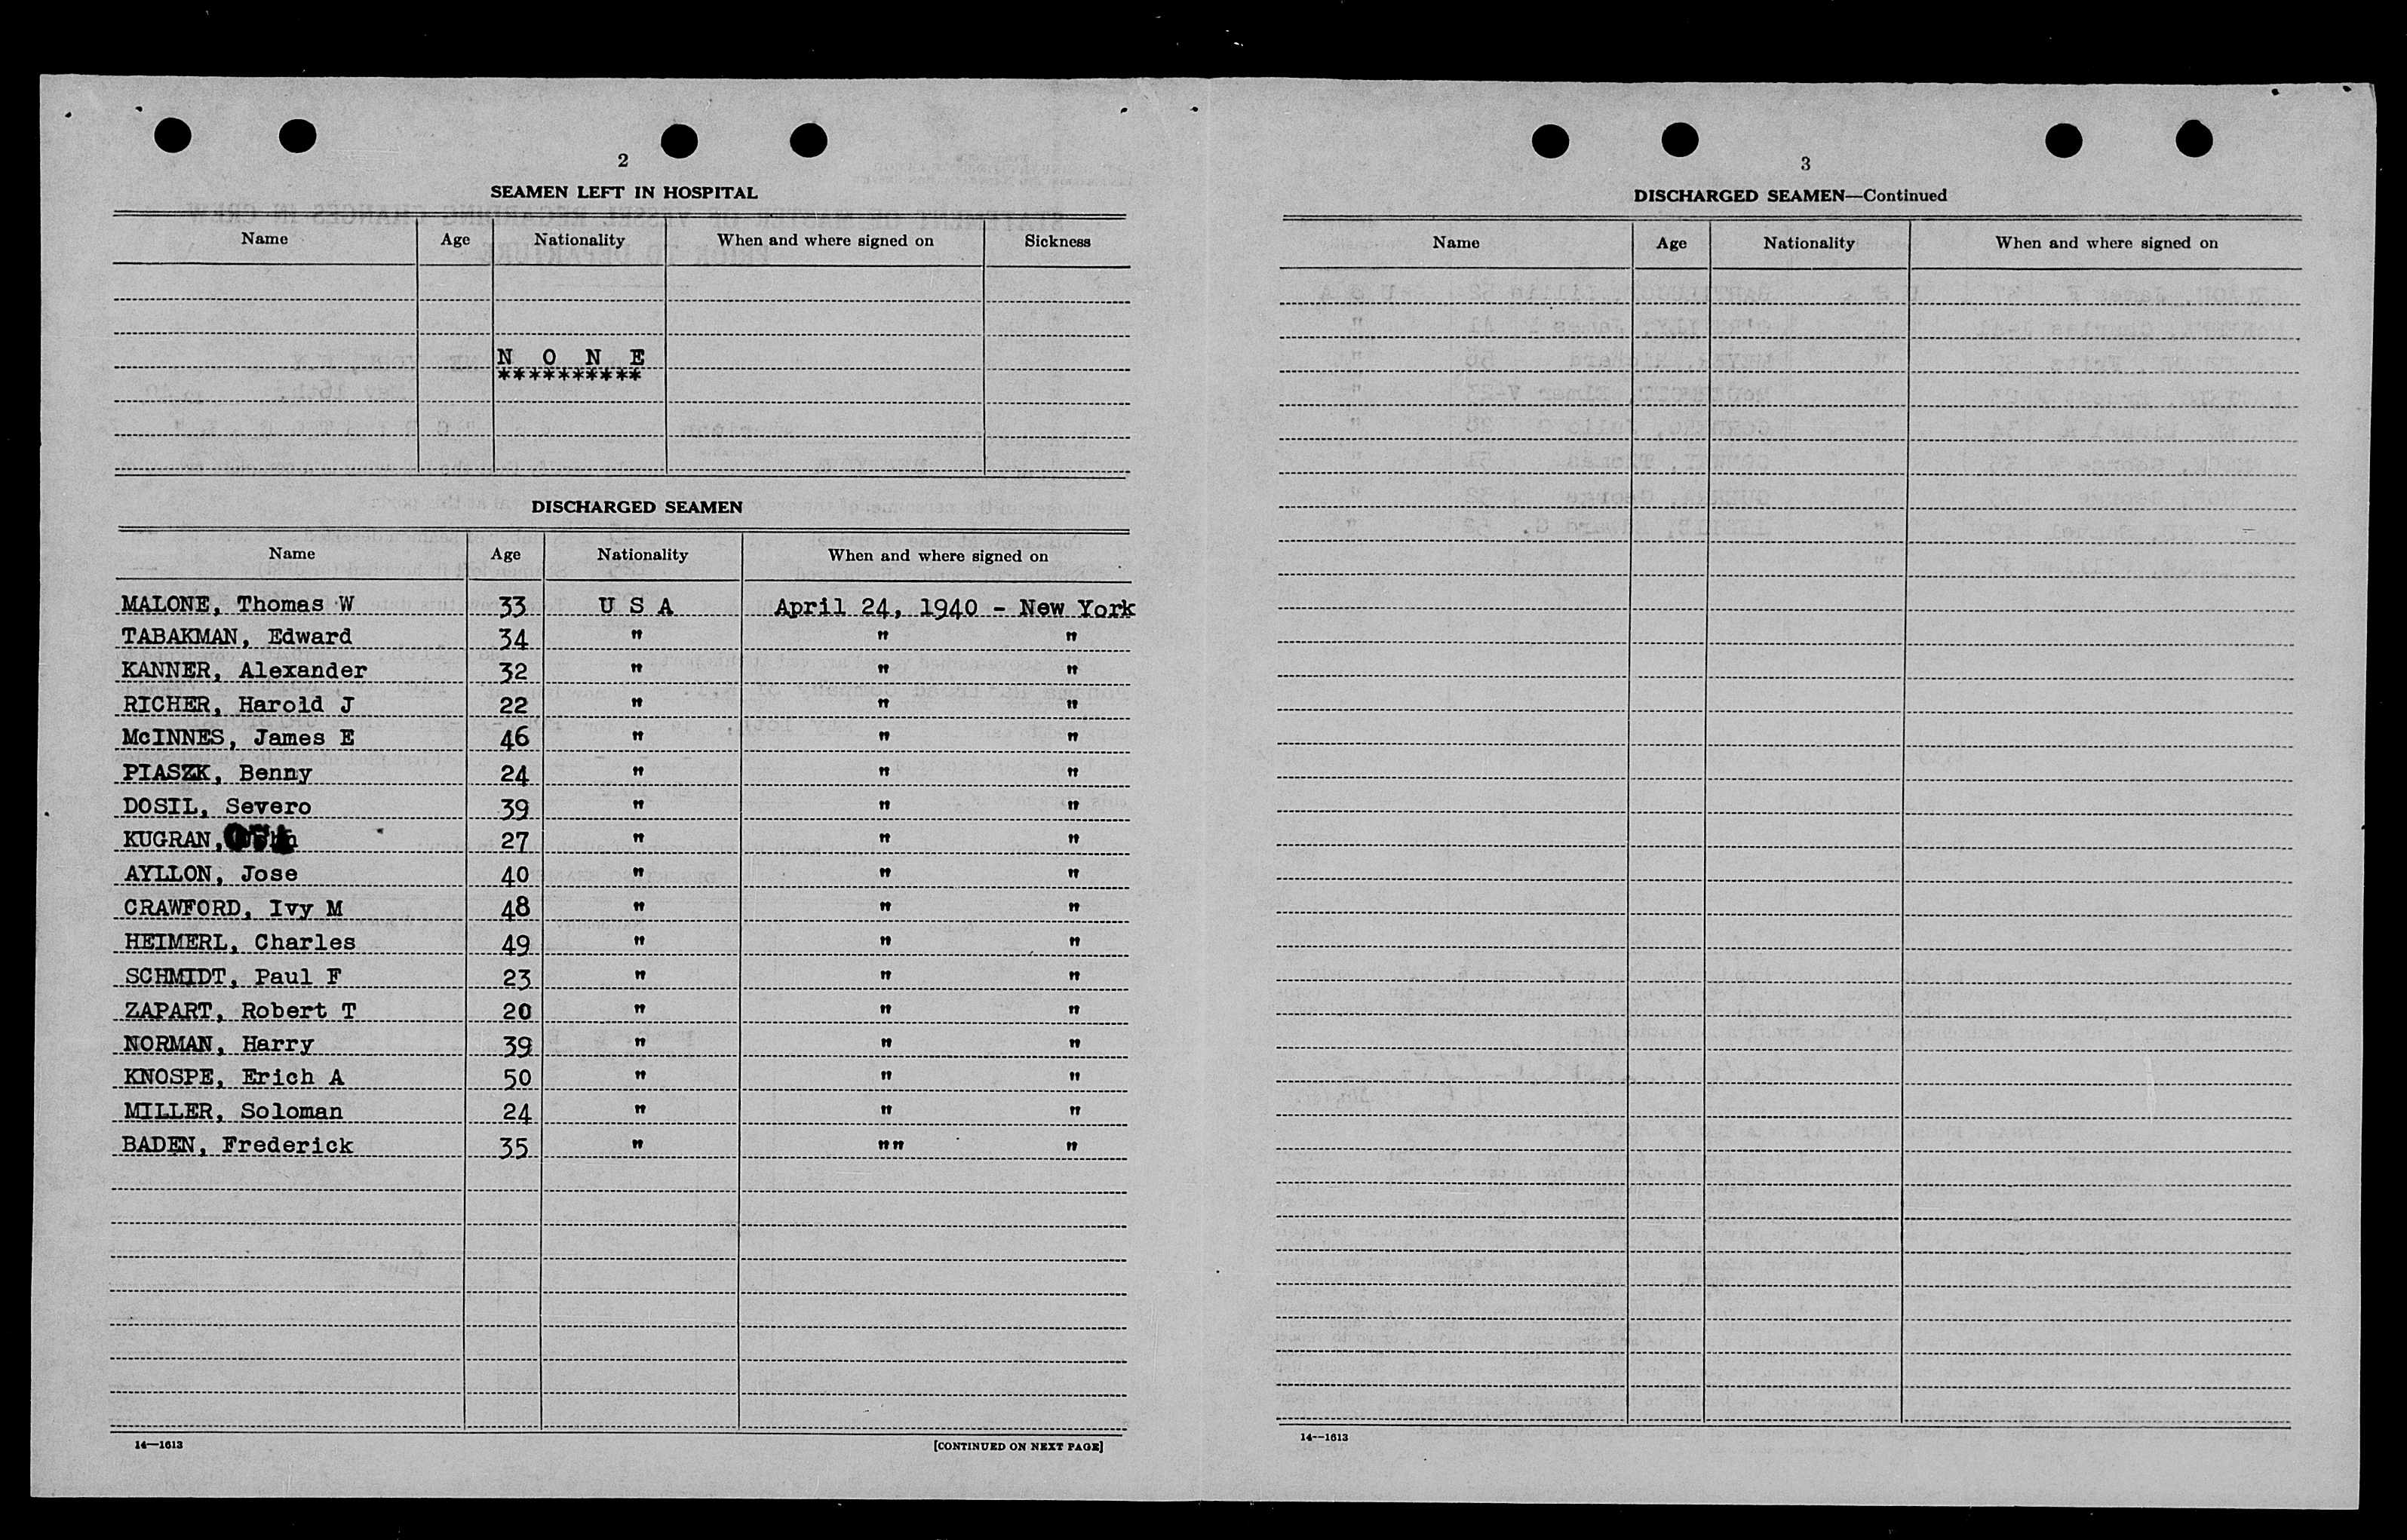 2
SEAMEN LEFT IN HOSPITAL
Name Age Nationality When and where signed on Sickness
N O N E
**********
DISCHARGED SEAMEN
Name Age Nationality When and where signed on
MALONE, Thomas W 33 U S A April 24, 1940 - New York
TABAKMAN, Edward 34 " " "
KANNER, Alexander 32 " " "
RICHER, Harold J 22 " " "
McINNES, James E 46 " " "
PIASZK, Benny 24 " " "
DOSIL, Severo 39 " " "
KUGRAN, 27 " " "
AYLLON, Jose 40 " " "
CRAWFORD, Ivy M 48 " " "
HEIMERL, Charles 49 " " "
SCHMIDT, Paul F 23 " " "
ZAPART, Robert T 20 " " "
NORMAN, Harry 39 " " "
KNOSPE, Erich A 50 " " "
MILLER, Soloman 24 " " "
BADEN, Frederick 35 " "" "
14—1613 [CONTINUED ON NEXT PAGE]
3
DISCHARGED SEAMEN—Continued
Name Age Nationality When and where signed on
14--1613